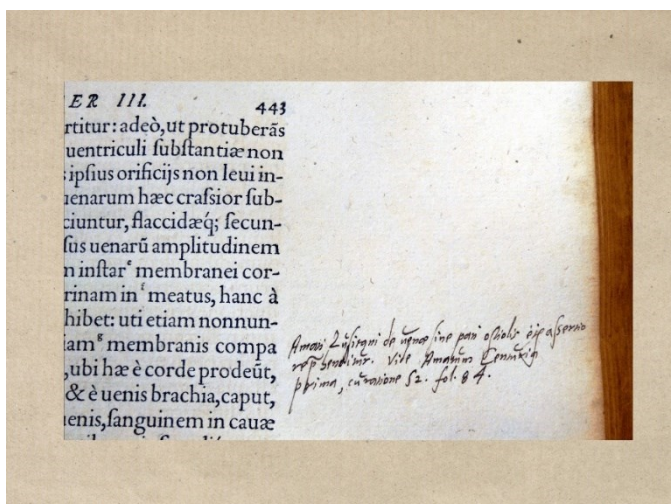 ER III. 443
rtitur: adeò, ut protuberãs
uentriculi substantiæ non
s ipsius orificijs non leui in-
uenarum hæc crassior sub-
ciuntur, flaccidæq́; secun-
sus uenarũ amplitudinem
n instar membranei cor-
rinam in meatus, hanc à
hibet: uti etiam nonnun-
iam g membranis compa
, ubi hæ è corde prodeũt,
& è uenis brachia, caput,
enis, sanguinem in cauæ
Amati Lusitani de uenæ sine pari ostiolis assertio
rep̃henditur. Vide Amatum Centuria
prima, curatione 52. fol. 84.